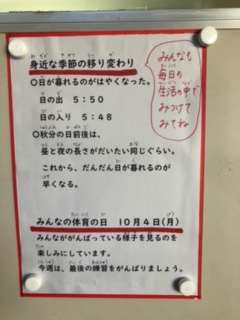 身近な季節の移り変わり
〇日が暮れるのがはやくなった。
日の出 5:50
日の入り 5:48
〇秋分の日前後は、
昼と夜の長さがだいたい同じぐらい。
これから、だんだん日が暮れるのが
早くなる。
みんなも
毎日の
生活の中で
みつけて
みてね
みんなの体育の日 10月4日(月)
みんながんばっている様子を見るのを
楽しみにしています。
今週は、最後の練習をがんばりましょう。